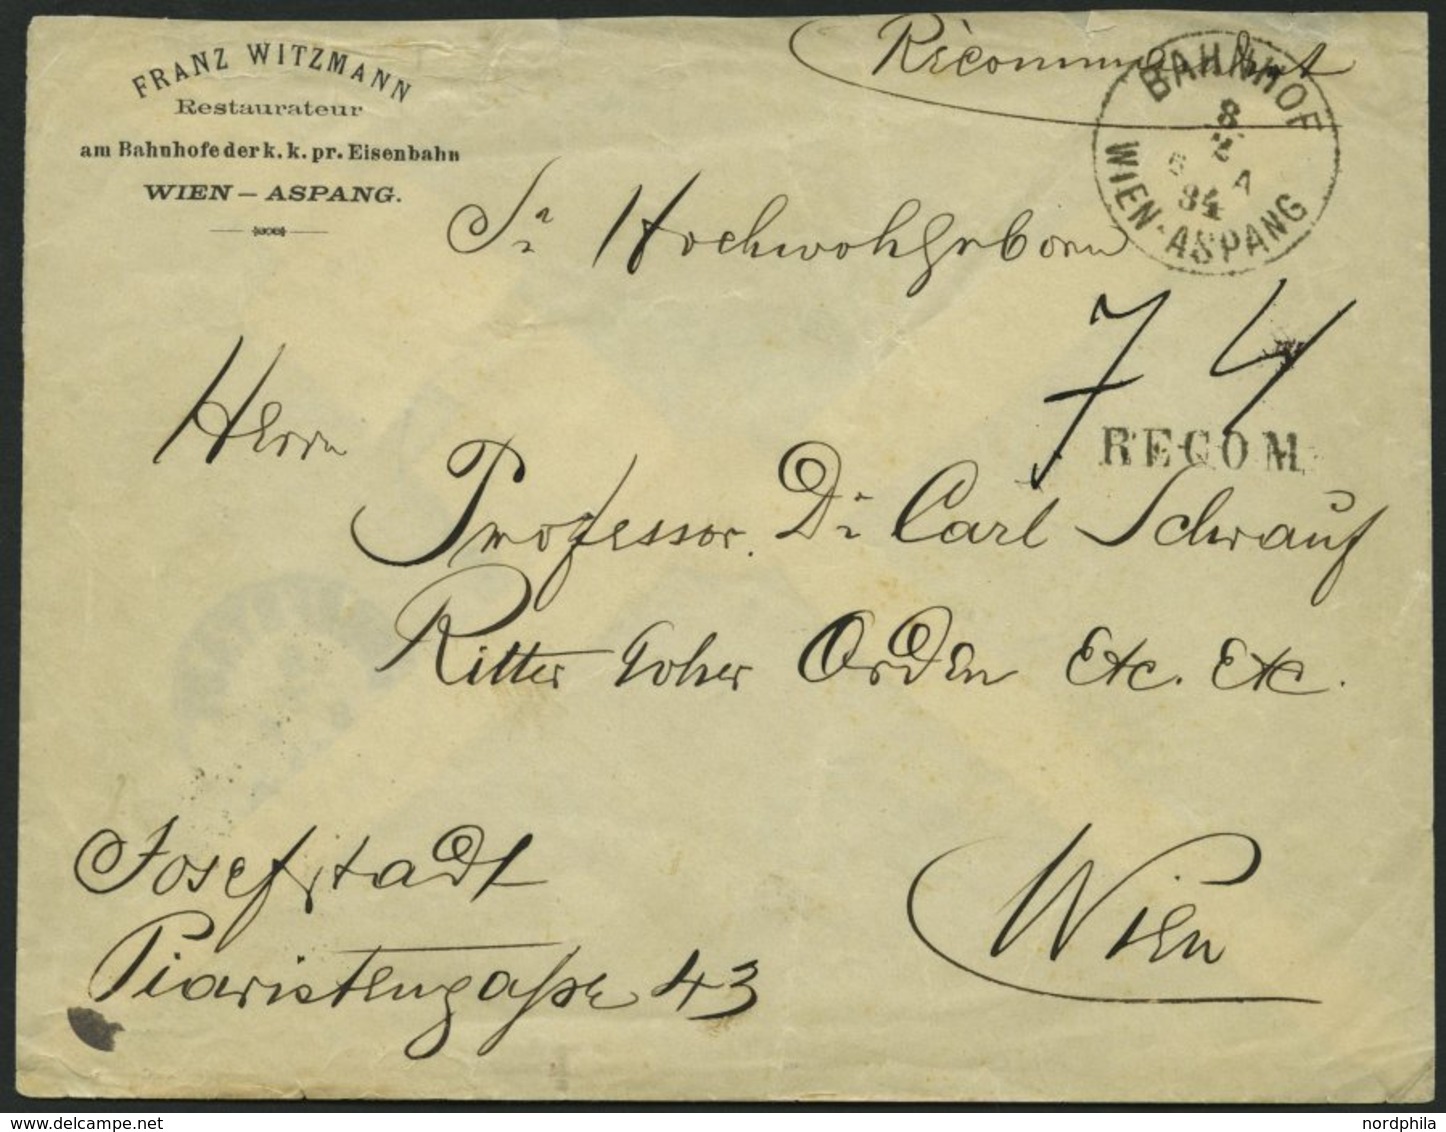 FRANZ WITZMANN
Restaurateur
am Bahnhofe der k. k. pr. Eisenbahn
WIEN – ASPANG.
Recommandirt
BAHNHOF
8
5
84
WIEN-ASPANG
Sr Hochwohlgeborn
74
RECOM
Herrn
Professor. Dr Carl Schrauf
Ritter hoher Orden Etc. Etc.
Josefstadt
Wien
Piaristengaße 43
nordphila